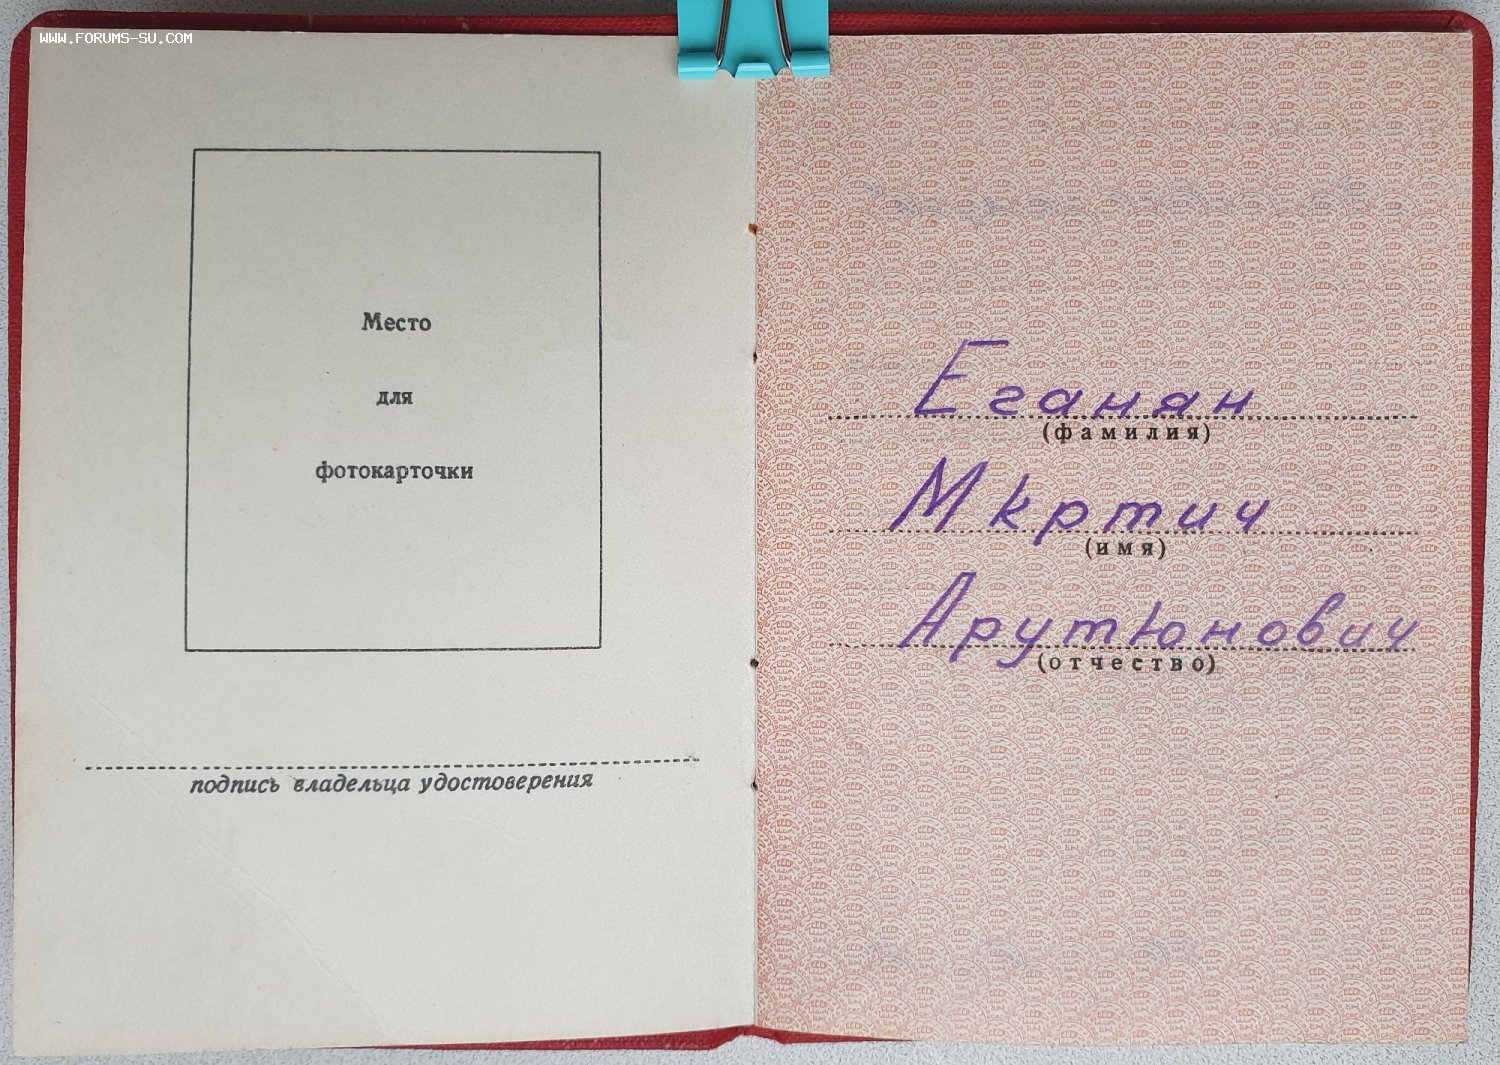 WWW.FORUMS-SU.COM
Место
для
фотокарточки
подпись владельца удостоверения
Еганян
(фамилия)
Мкртич
(имя)
Арутюнович
(отчество)